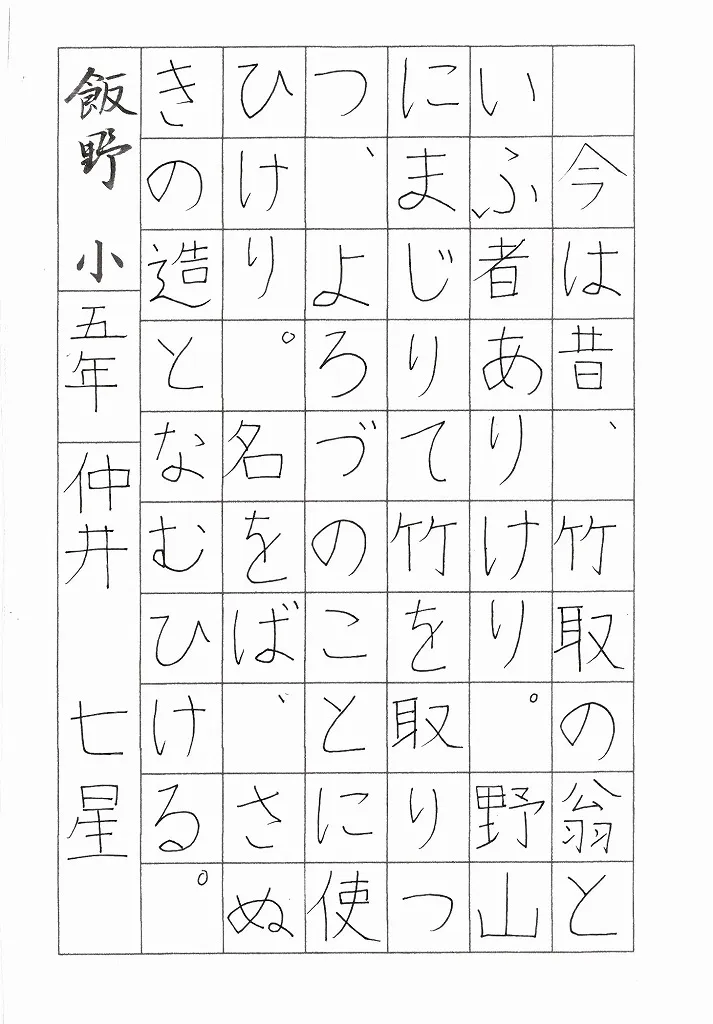 今は昔、竹取の翁と
いふ者ありけり。野山
にまじりて竹を取りつ
つ、よろづのことに使
ひけり。名をば、さぬ
きの造となむひける。
飯野小 五年 仲井 七星